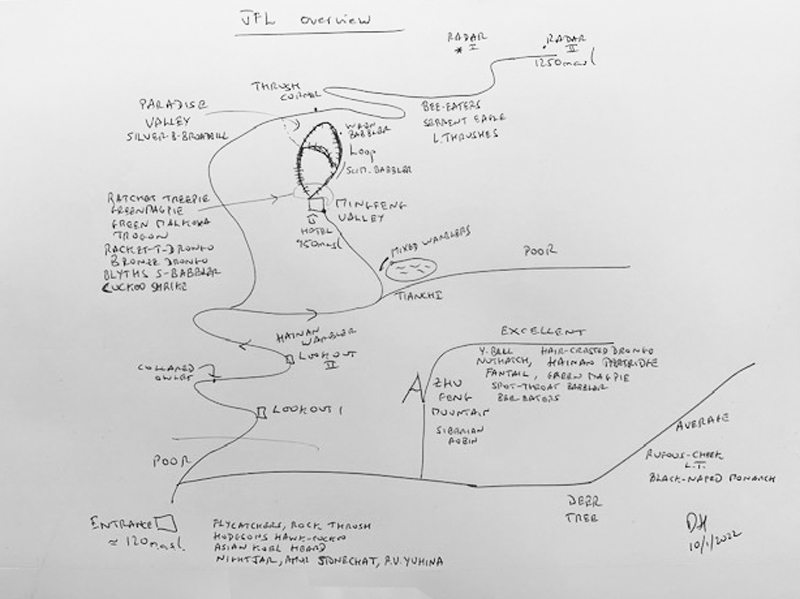 JFL overview
RADAR
I
RADAR
II
1250masl
THRUSH
CORNER
PARADISE
VALLEY
SILVER-B-BROADBILL
BEE-EATERS
SERPENT EAGLE
L.THRUSHES
WREN
BABBLER
Loop
SLIM-BABBLER
RATCHET TREEPIE
GREENMAGPIE
GREEN MALKOHA
TROGON
RACKET-T-DRONGO
BRONZE DRONGO
BLYTHS S-BABBLER
CUCKOO SHRIKE
MINGFENG
VALLEY
HOTEL
950masl
MIXED WARBLERS
POOR
TIANCHI
HAINAN
WARBLER
LOOKOUT
II
COLLARED
OWLET
LOOKOUT 1
EXCELLENT
Y-BILL
NUTHATCH,
FANTAIL,
HAIR-CRESTED DRONGO
HAINAN PARTRIDGE
GREEN MAGPIE
SPOT-THROAT BABBLER
BEE EATERS
ZHU
FENG
MOUNTAIN
SIBERIAN
ROBIN
POOR
AVERAGE
RUFOUS-CHEEK
L.T.
BLACK-NAPED MONARCH
DEER
TREE
ENTRANCE
≈ 120masl.
FLYCATCHERS, ROCK THRUSH
HODGSONS HAWK-CUCKOO
ASIAN KOEL HEARD
NIGHTJAR, AMUR STONECHAT, R.V.YUHINA
DH
10/1/2022